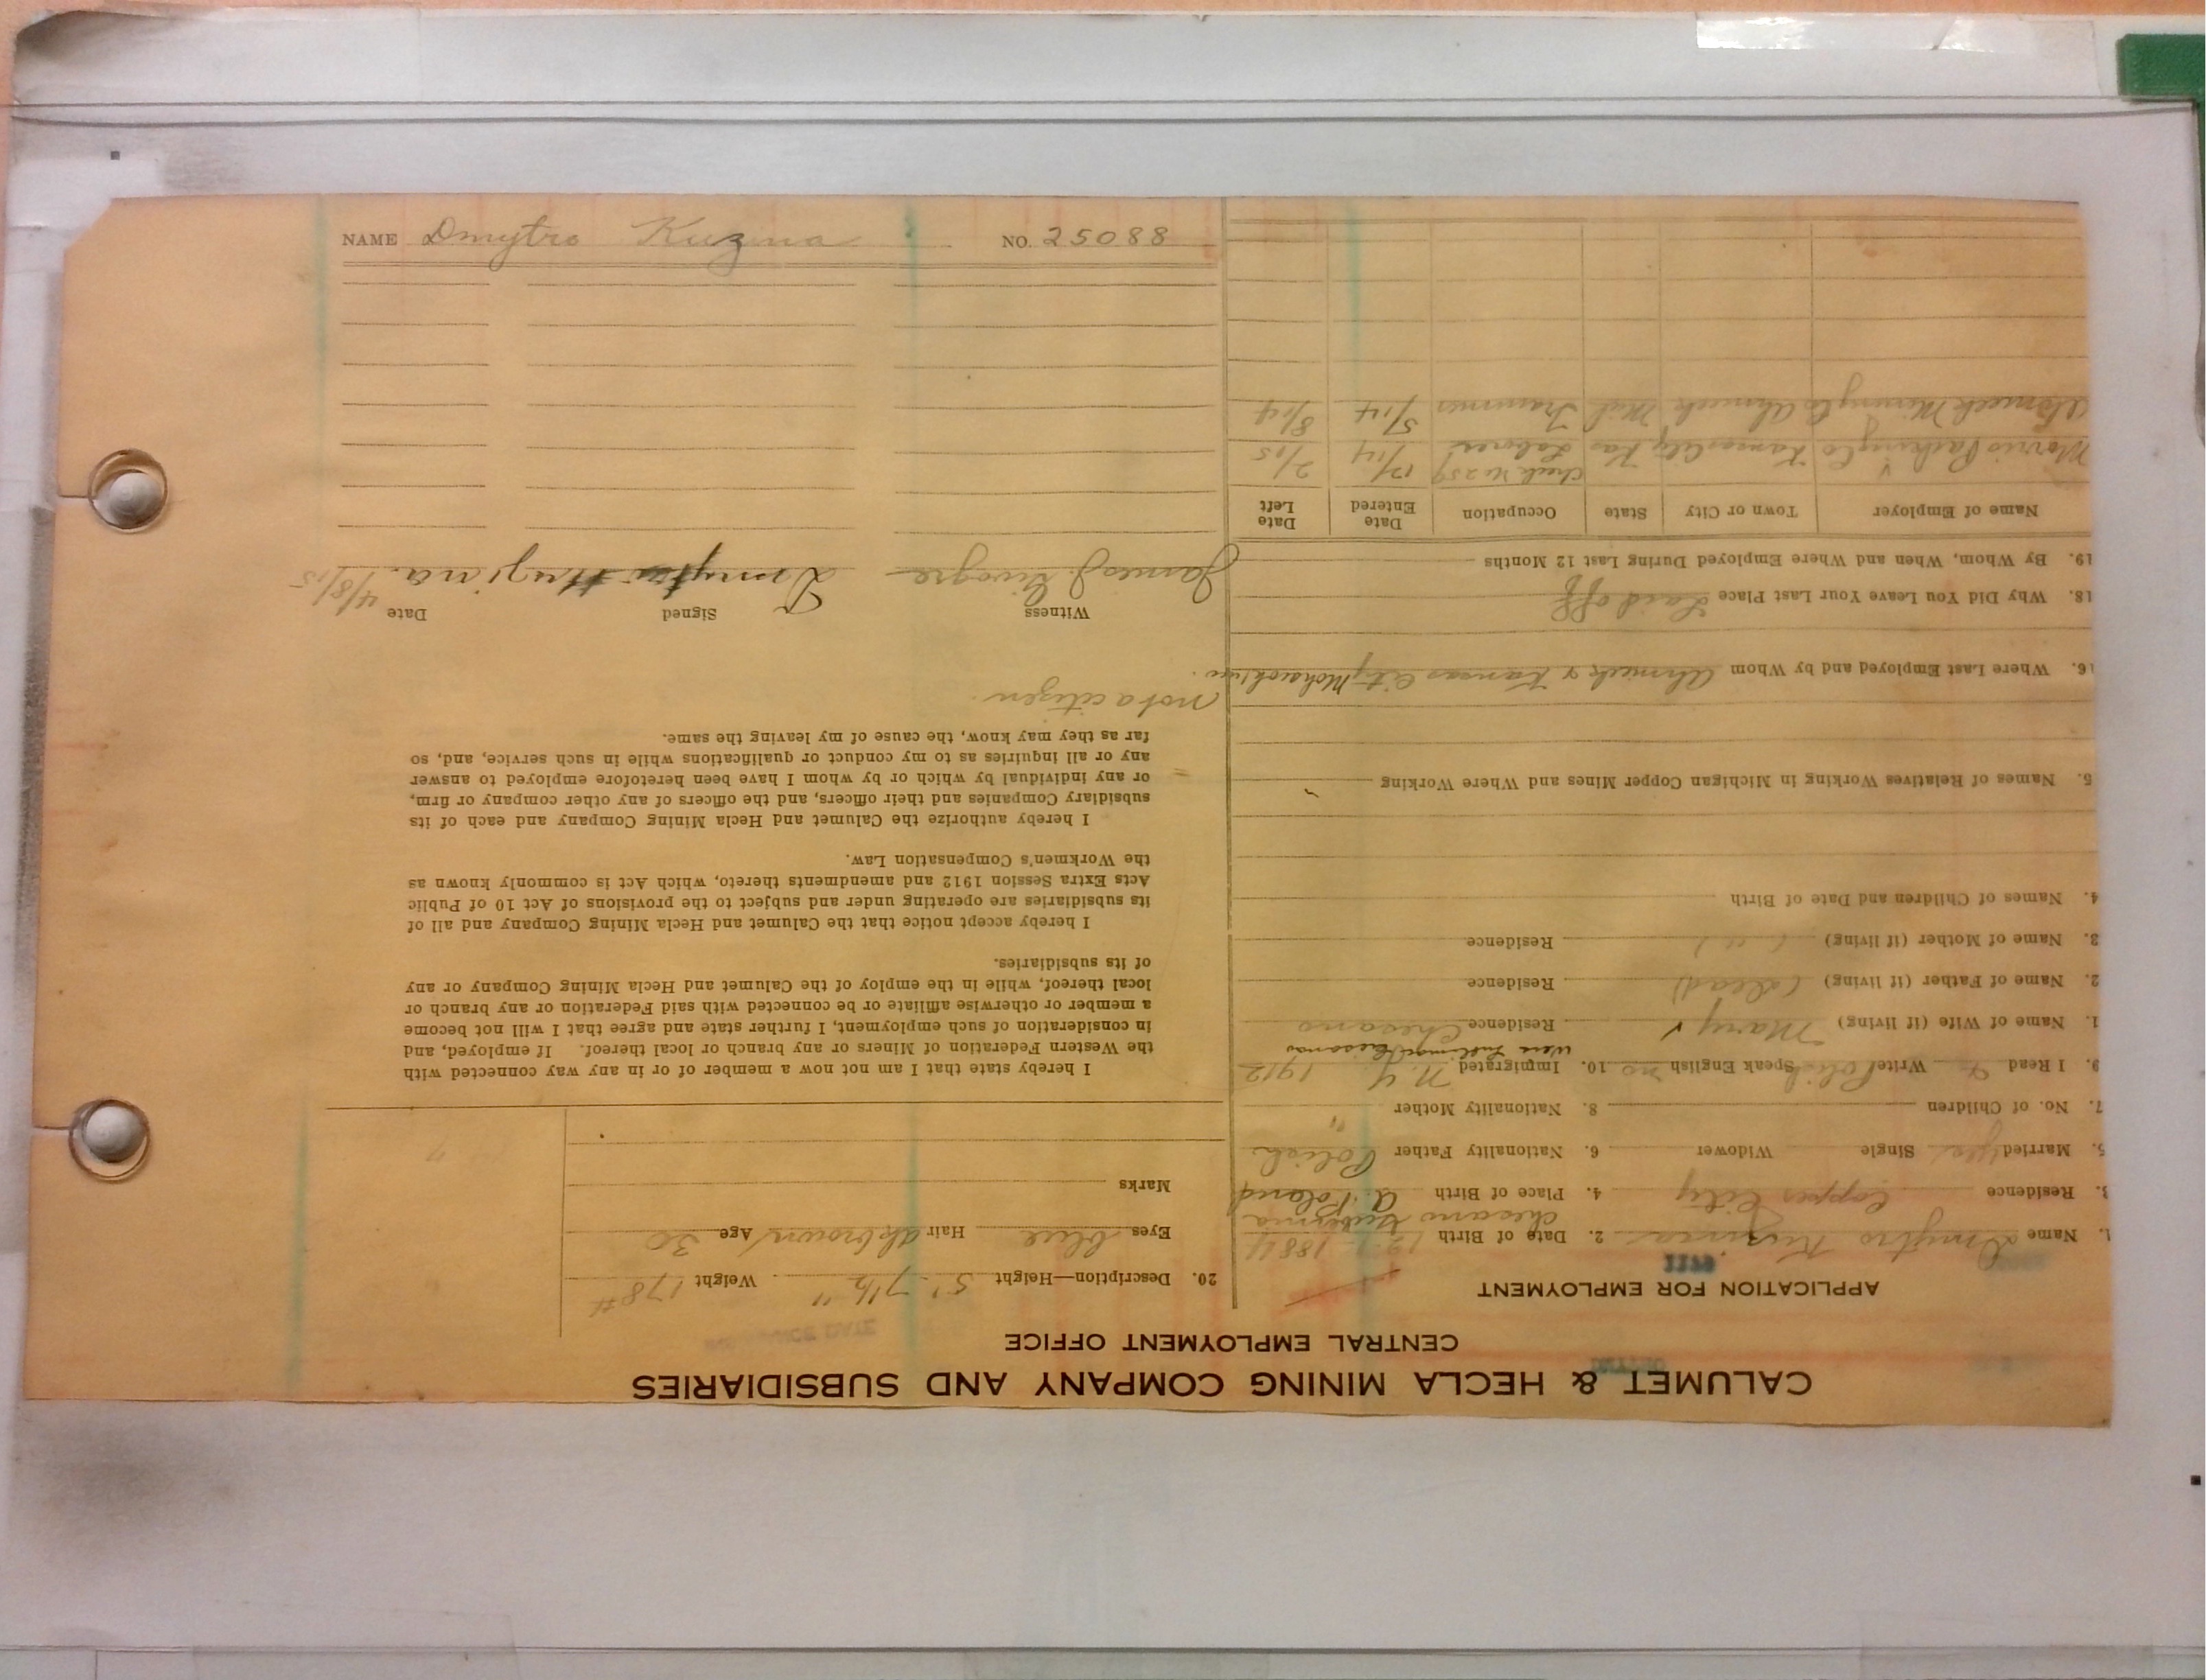 CALUMET & HECLA MINING COMPANY AND SUBSIDIARIES
CENTRAL EMPLOYMENT OFFICE
APPLICATION FOR EMPLOYMENT
1. Name Dmytro Kuzma 2. Date of Birth 1884
3. Residence Copper City 4. Place of Birth Poland
5. Married yes Single Widower 6. Nationality Father Polish
7. No. of Children 8. Nationality Mother "
9. I Read Write Polish Speak English no 10. Immigrated N.Y. 1912
1. Name of Wife (if living) Mary Residence Chesano
2. Name of Father (if living) (dead) Residence
3. Name of Mother (if living) Residence
4. Names of Children and Date of Birth
5. Names of Relatives Working in Michigan Copper Mines and Where Working
16. Where Last Employed and by Whom Ahmeek & Kansas City
18. Why Did You Leave Your Last Place Laid off
19. By Whom, When and Where Employed During Last 12 Months
Name of Employer Town or City State Occupation Date Entered Date Left
Check No 259
Morris Packing Co Kansas City Kas Laborer 12/14 2/15
Ahmeek Mining Co Ahmeek Mich Trammer 5/14 8/14
20. Description—Height 5' 7 1/2" Weight 178#
Eyes blue Hair dk brown Age 30
Marks
I hereby state that I am not now a member of or in any way connected with
the Western Federation of Miners or any branch or local thereof. If employed, and
in consideration of such employment, I further state and agree that I will not become
a member or otherwise affiliate or be connected with said Federation or any branch or
local thereof, while in the employ of the Calumet and Hecla Mining Company or any
of its subsidiaries.
I hereby accept notice that the Calumet and Hecla Mining Company and all of
its subsidiaries are operating under and subject to the provisions of Act 10 of Public
Acts Extra Session 1912 and amendments thereto, which Act is commonly known as
the Workmen's Compensation Law.
I hereby authorize the Calumet and Hecla Mining Company and each of its
subsidiary Companies and their officers, and the officers of any other company or firm,
or any individual by which or by whom I have been heretofore employed to answer
any or all inquiries as to my conduct or qualifications while in such service, and, so
far as they may know, the cause of my leaving the same.
not a citizen.
Witness Signed Date
James J. Dmytro 4/8/15
NAME Dmytro Kuzma NO. 25088